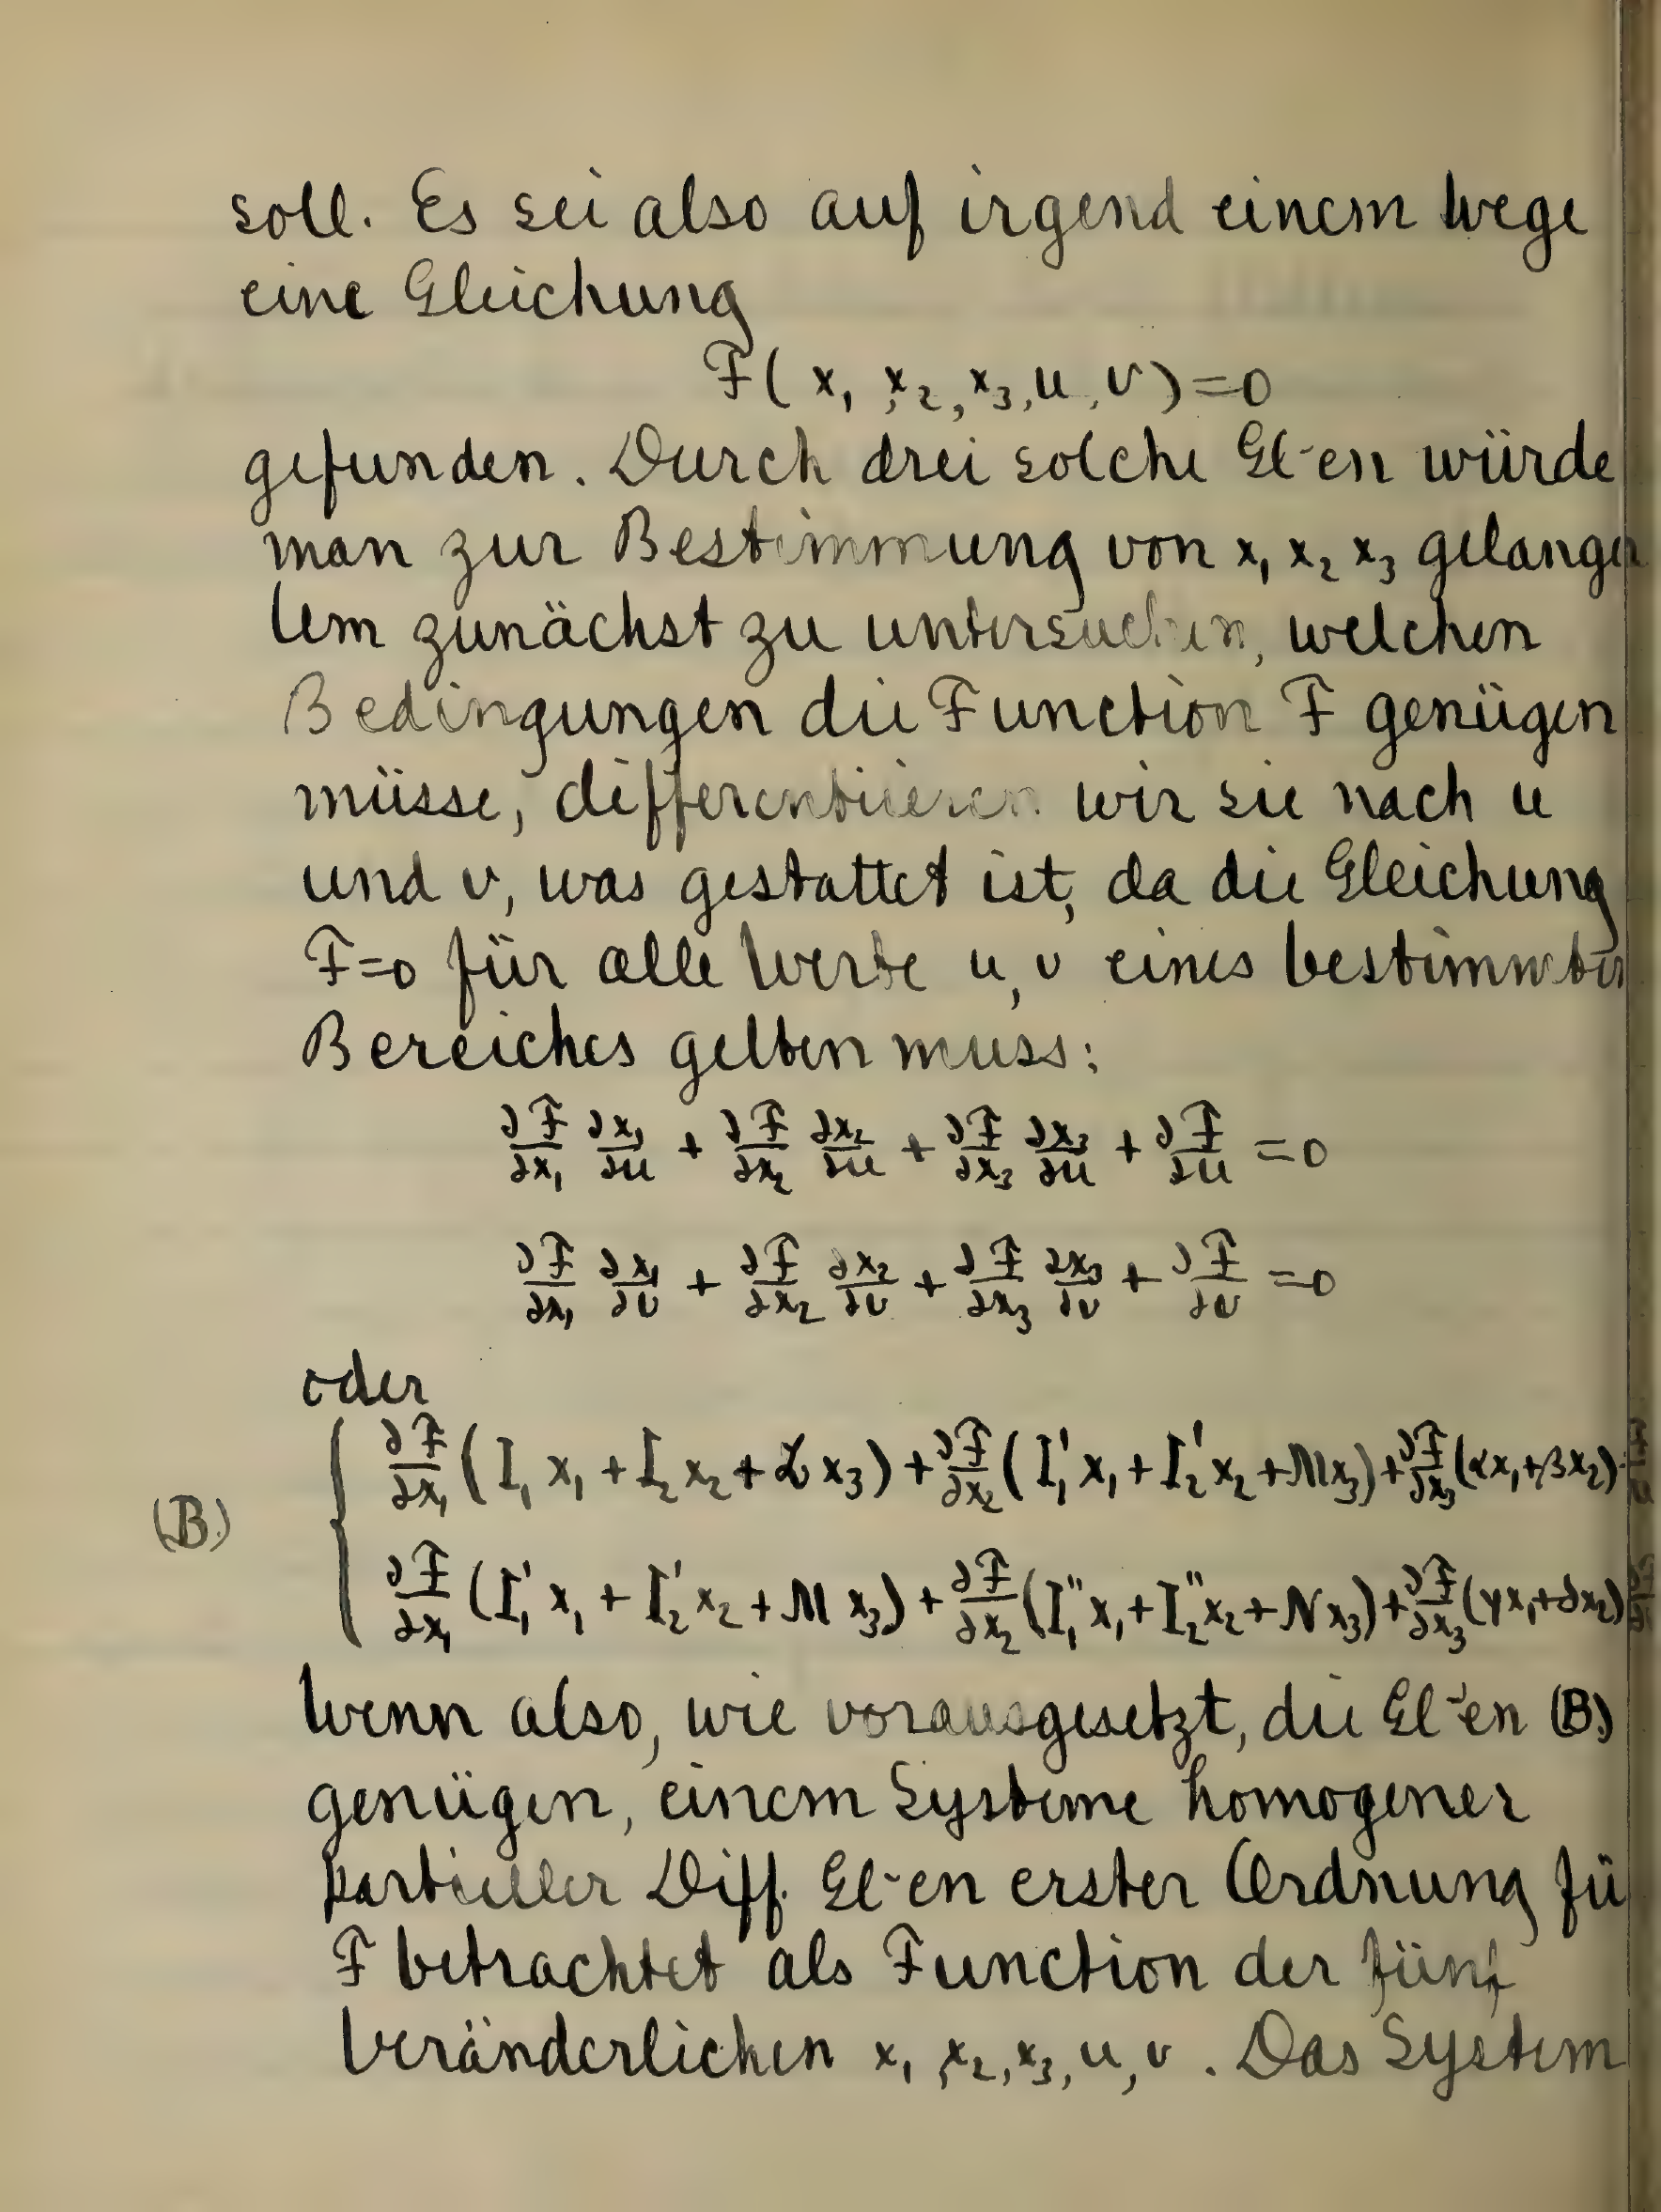 soll. Es sei also auf irgend einem Wege
eine Gleichung
F(x₁, x₂, x₃, u, v)=0
gefunden. Durch drei solche Gl-en würde
man zur Bestimmung von x₁ x₂ x₃ gelangen
Um zunächst zu untersuchen, welchen
Bedingungen die Function F genügen
müsse, differentiieren wir sie nach u
und v, was gestattet ist, da die Gleichung
F=0 für alle Werte u, v eines bestimmten
Bereiches gelten muss:
∂F/∂x₁ ∂x₁/∂u + ∂F/∂x₂ ∂x₂/∂u + ∂F/∂x₃ ∂x₃/∂u + ∂F/∂u = 0
∂F/∂x₁ ∂x₁/∂v + ∂F/∂x₂ ∂x₂/∂v + ∂F/∂x₃ ∂x₃/∂v + ∂F/∂v = 0
oder
(B) { ∂F/∂x₁ (I₁ x₁ + I₂ x₂ + L x₃) + ∂F/∂x₂ (I₁' x₁ + I₂' x₂ + M x₃) + ∂F/∂x₃ (αx₁ + βx₂)
∂F/∂x₁ (I₁' x₁ + I₂' x₂ + M x₃) + ∂F/∂x₂ (I₁'' x₁ + I₂'' x₂ + N x₃) + ∂F/∂x₃ (γx₁ + δx₂)
Wenn also, wie vorausgesetzt, die Gl-en (B)
genügen, einem Systeme homogener
partieller Diff. Gl-en erster Ordnung fü
F betrachtet als Function der fünf
Veränderlichen x₁, x₂, x₃, u, v. Das System